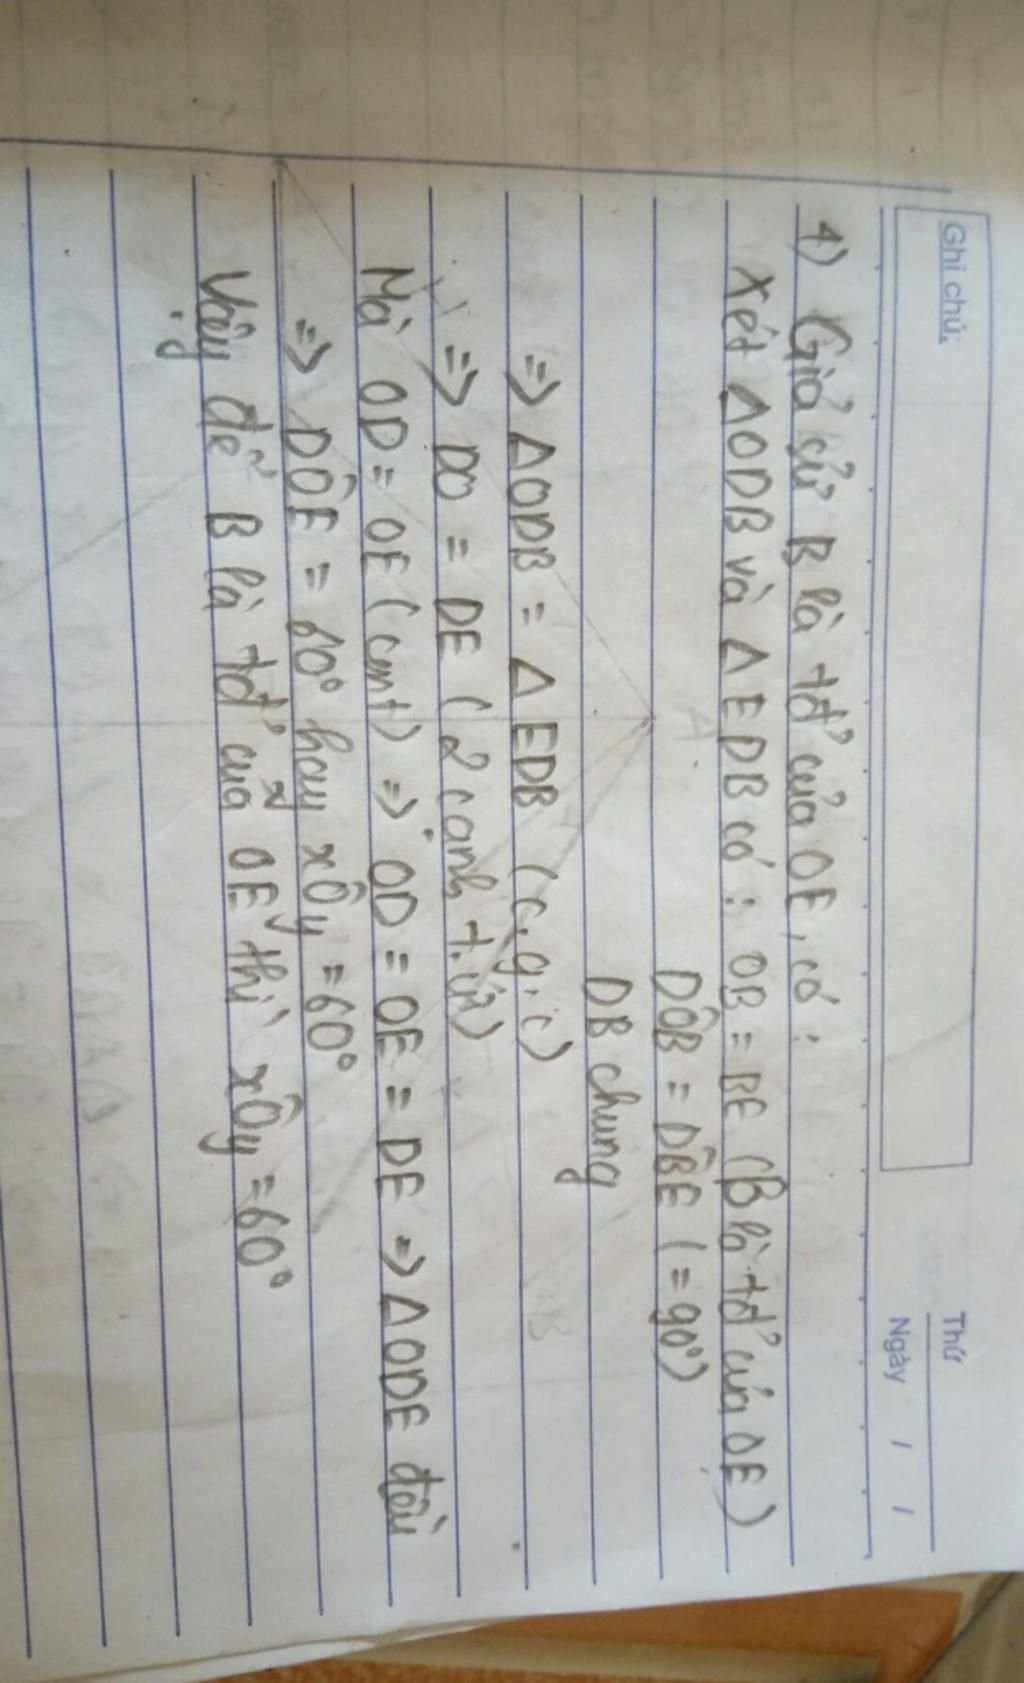 Ghi chú:
Thứ
Ngày / /
4) Giả sử B là tđ' của OE, có :
Xét ΔODB và ΔEDB có : OB = BE (B là tđ' của OE)
DÔB = DB̂E (= 90°)
DB chung
=> ΔODB = ΔEDB (c.g.c)
=> DO = DE (2 cạnh t.ứ)
Mà OD = OE (cmt) => OD = OE = DE => ΔODE đều
=> DÔE = 60° hay xÔy = 60°
Vậy để B là tđ' của OE thì xÔy = 60°